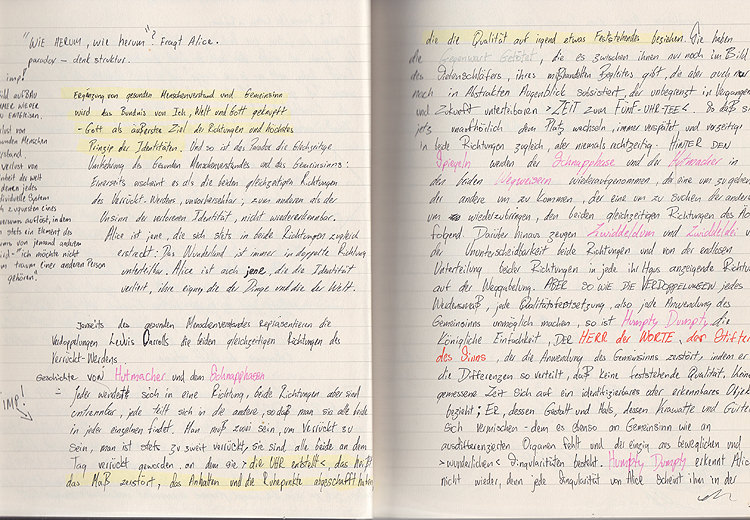 "WIE HERUM, wie herum"? Fragt Alice.
paradox – dent struktur.
imp!
Bild aufbau
immer wieder
zu entgleisen.
Verlust von
gesunden Menschen
verstand.
verlust von
Einheit der Welt
in denen jedes
individuelle System
sich zugunsten eines
Universums auflöst, indem
man stets ein Element des
Traums von jemand anderem
wird – "ich möchte nicht
dem traum einer anderen Person
gehören."
Ergänzung von gesunden Menschenverstand und Gemeinsinn
wird das Bündnis von Ich, Welt und Gott geknüpft
– Gott als äußerstes Ziel der Richtungen und höchstes
Prinzip der Identitäten. Und so ist das Paradox die gleichzeitige
Umkehrung des Gesunden Menschenverstandes und des Gemeinsinns:
Einerseits erscheint es als die beiden gleichzeitigen Richtungen
des Verrückt-Werdens, unvorhersehbar; zum anderen als der
Unsinn der verlorenen Identität, nicht wiedererkennbar.
Alice ist jene, die sich stets in beide Richtungen zugleich
erstreckt: Das Wunderland ist immer in doppelte Richtung
unterteilbar. Alice ist auch jene, die die Identität
verliert, ihre eigene, die der Dinge und die der Welt.
Jenseits des gesunden Menschenverstandes repräsentieren die
Verdoppelungen Lewis Carrolls die beiden gleichzeitigen Richtungen des
Verrückt-Werdens
Geschichte von Hutmacher und dem Schnapphasen
IMP!
– Jeder werdet sich in eine Richtung, beide Richtungen aber sind
untrennbar, jede teilt sich in die andere, sodaß man sie alle beide
in jeder einzelnen findet. Man muß zwei sein, um Verrückt zu
sein, man ist stets zu zweit verrückt, sie sind alle beide an dem
Tag verrückt geworden, an dem sie >die UHR entstellt<, das heißt
das Maß zerstört, das Anhalten und die Ruhepunkte abgeschafft haben,
die die Qualität auf irgend etwas Feststehendes beziehen. Sie haben
die Gegenwart Getötet, die es zwischen ihnen nur noch im Bild
des Siebenschläfers, ihres mißhandelten Begleiters gibt, die aber auch nur
noch in Abstrakten Augenblick subsistiert, der unbegrenzt in Vergangenheit
und Zukunft unterteilbaren >ZEIT zum FÜNF-UHR-TEE<. So daß sie
jetzt unaufhörlich dem Platz wechseln, immer verspätet und vorzeitig
In beide Richtungen zugleich, aber niemals rechtzeitig. HINTER DEN
Spiegeln werden der Schnapphase und der Hutmacher in
den beiden Wegweisern wiederaufgenommen, die eine um zu gehen,
der andere um zu kommen, der eine um zu suchen, der andere
um wiederzubringen, den beiden gleichzeitigen Richtungen des
folgend. Darüber hinaus zeugen Zwiddeldum und Zwiddeldei von
der Ununterscheidbarkeit beide Richtungen und von der endlosen
Unterteilung beider Richtungen in jede ihr Haus anzeigende Richtung
auf der Weggabelung. ABER SO WIE DIE VERDOPPELUNGEN jedes
Wedasmaß, jede Qualitätsfestsetzung, also jede Anwendung des
Gemeinsinns unmöglich machen, so ist Humpty Dumpty die
Königliche Einfachheit, DER HERR der WORTE, der Stifter
des Sinns, der die Anwendung des Gemeinsinns zerstört, indem er
die Differenzen so verteilt, daß keine feststehende Qualität, keine
gemessene Zeit sich auf ein identifizierbares oder erkennbares Objekt
bezieht; Er, dessen Gestalt und Hals, dessen Krawatte und Gürtel
sich vermischen – dem es ebenso an Gemeinsinn wie an
ausdifferenzierten Organen fehlt und der einzig aus beweglichen und
>wunderlichen< Singularitäten besteht. Humpty Dumpty erkennt Alice
nicht wieder, denn jede Singularität von Alice scheint ihm in der